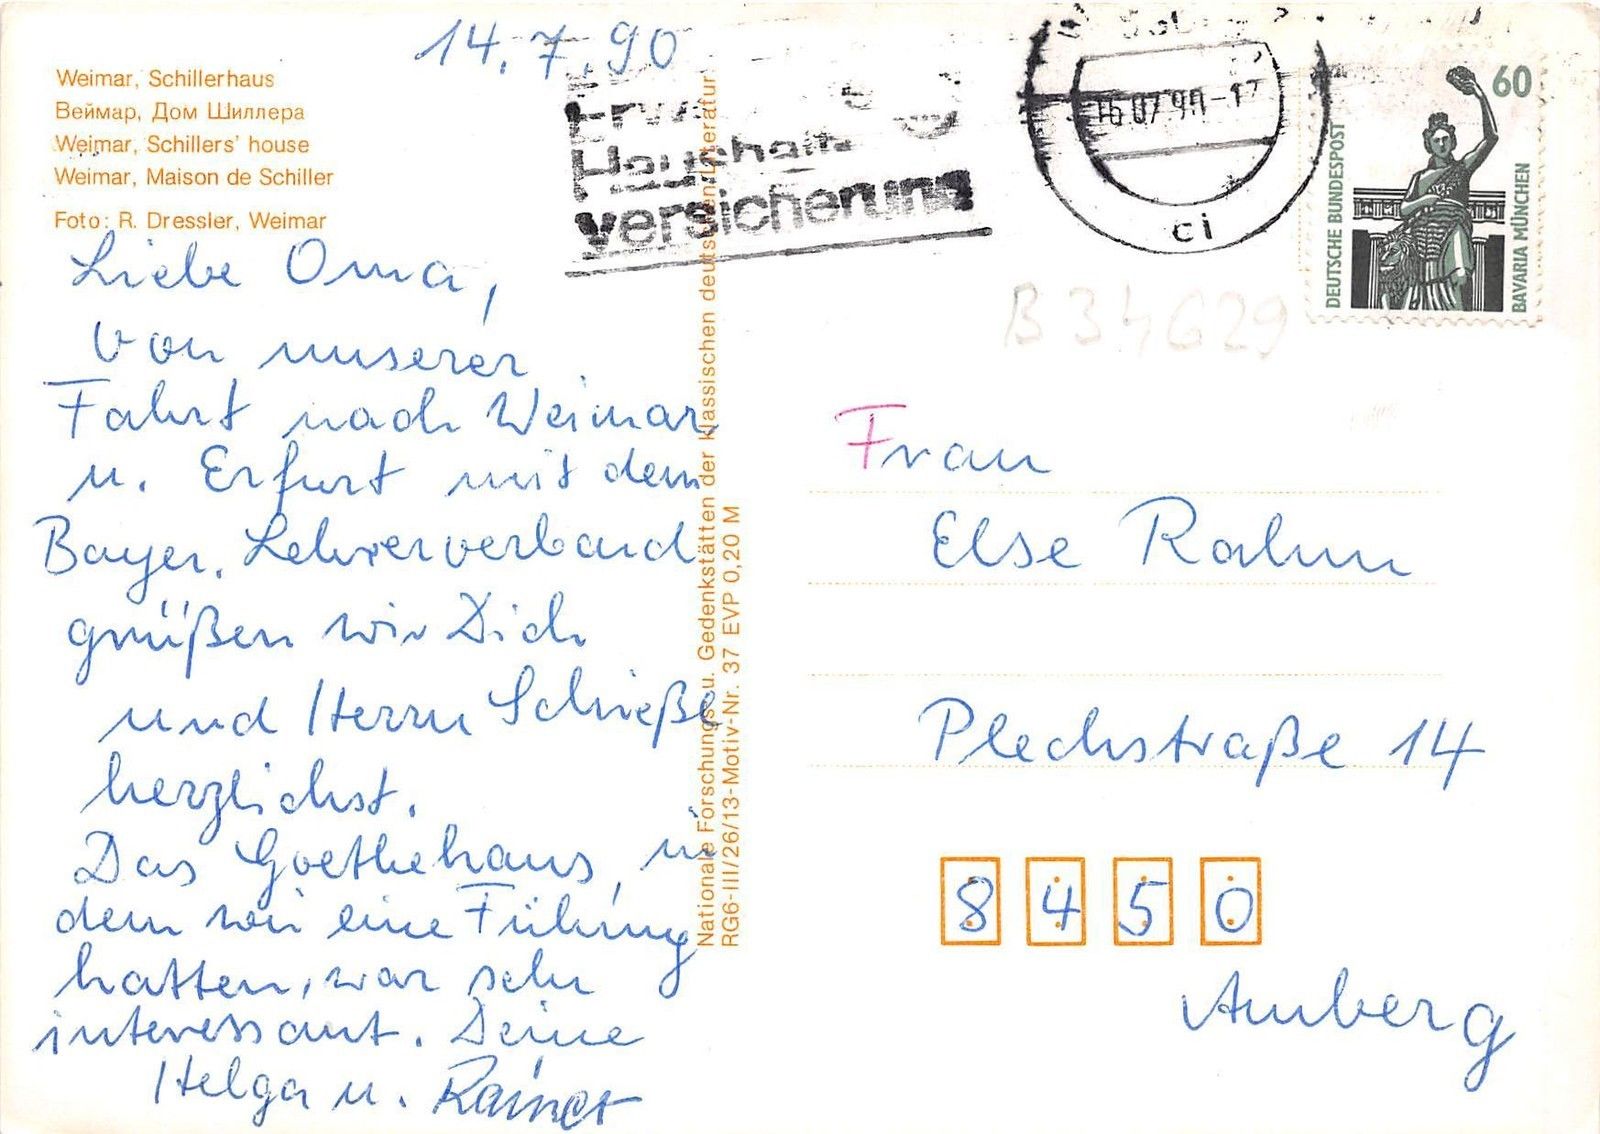 14.7.90
Weimar, Schillerhaus
Веймар, Дом Шиллера
Weimar, Schillers' house
Weimar, Maison de Schiller
Foto: R. Dressler, Weimar
Liebe Oma,
von unserer
Fahrt nach Weimar
u. Erfurt mit dem
Bayer. Lehrerverband
grüßen wir Dich
und Herrn Schießl
herzlichst.
Das Goethehaus, in
dem wir eine Führung
hatten, war sehr
interessant. Deine
Helga u. Rainer
Nationale Forschungs- u. Gedenkstätten der klassischen deutschen Literatur
RG6-III/26/13-Motiv-Nr. 37 EVP 0,20 M
Haushalt
versicherung
16.07.90-17
ci
60
DEUTSCHE BUNDESPOST
BAVARIA MÜNCHEN
B34629
Frau
Else Rahm
Plechstraße 14
8450
Amberg